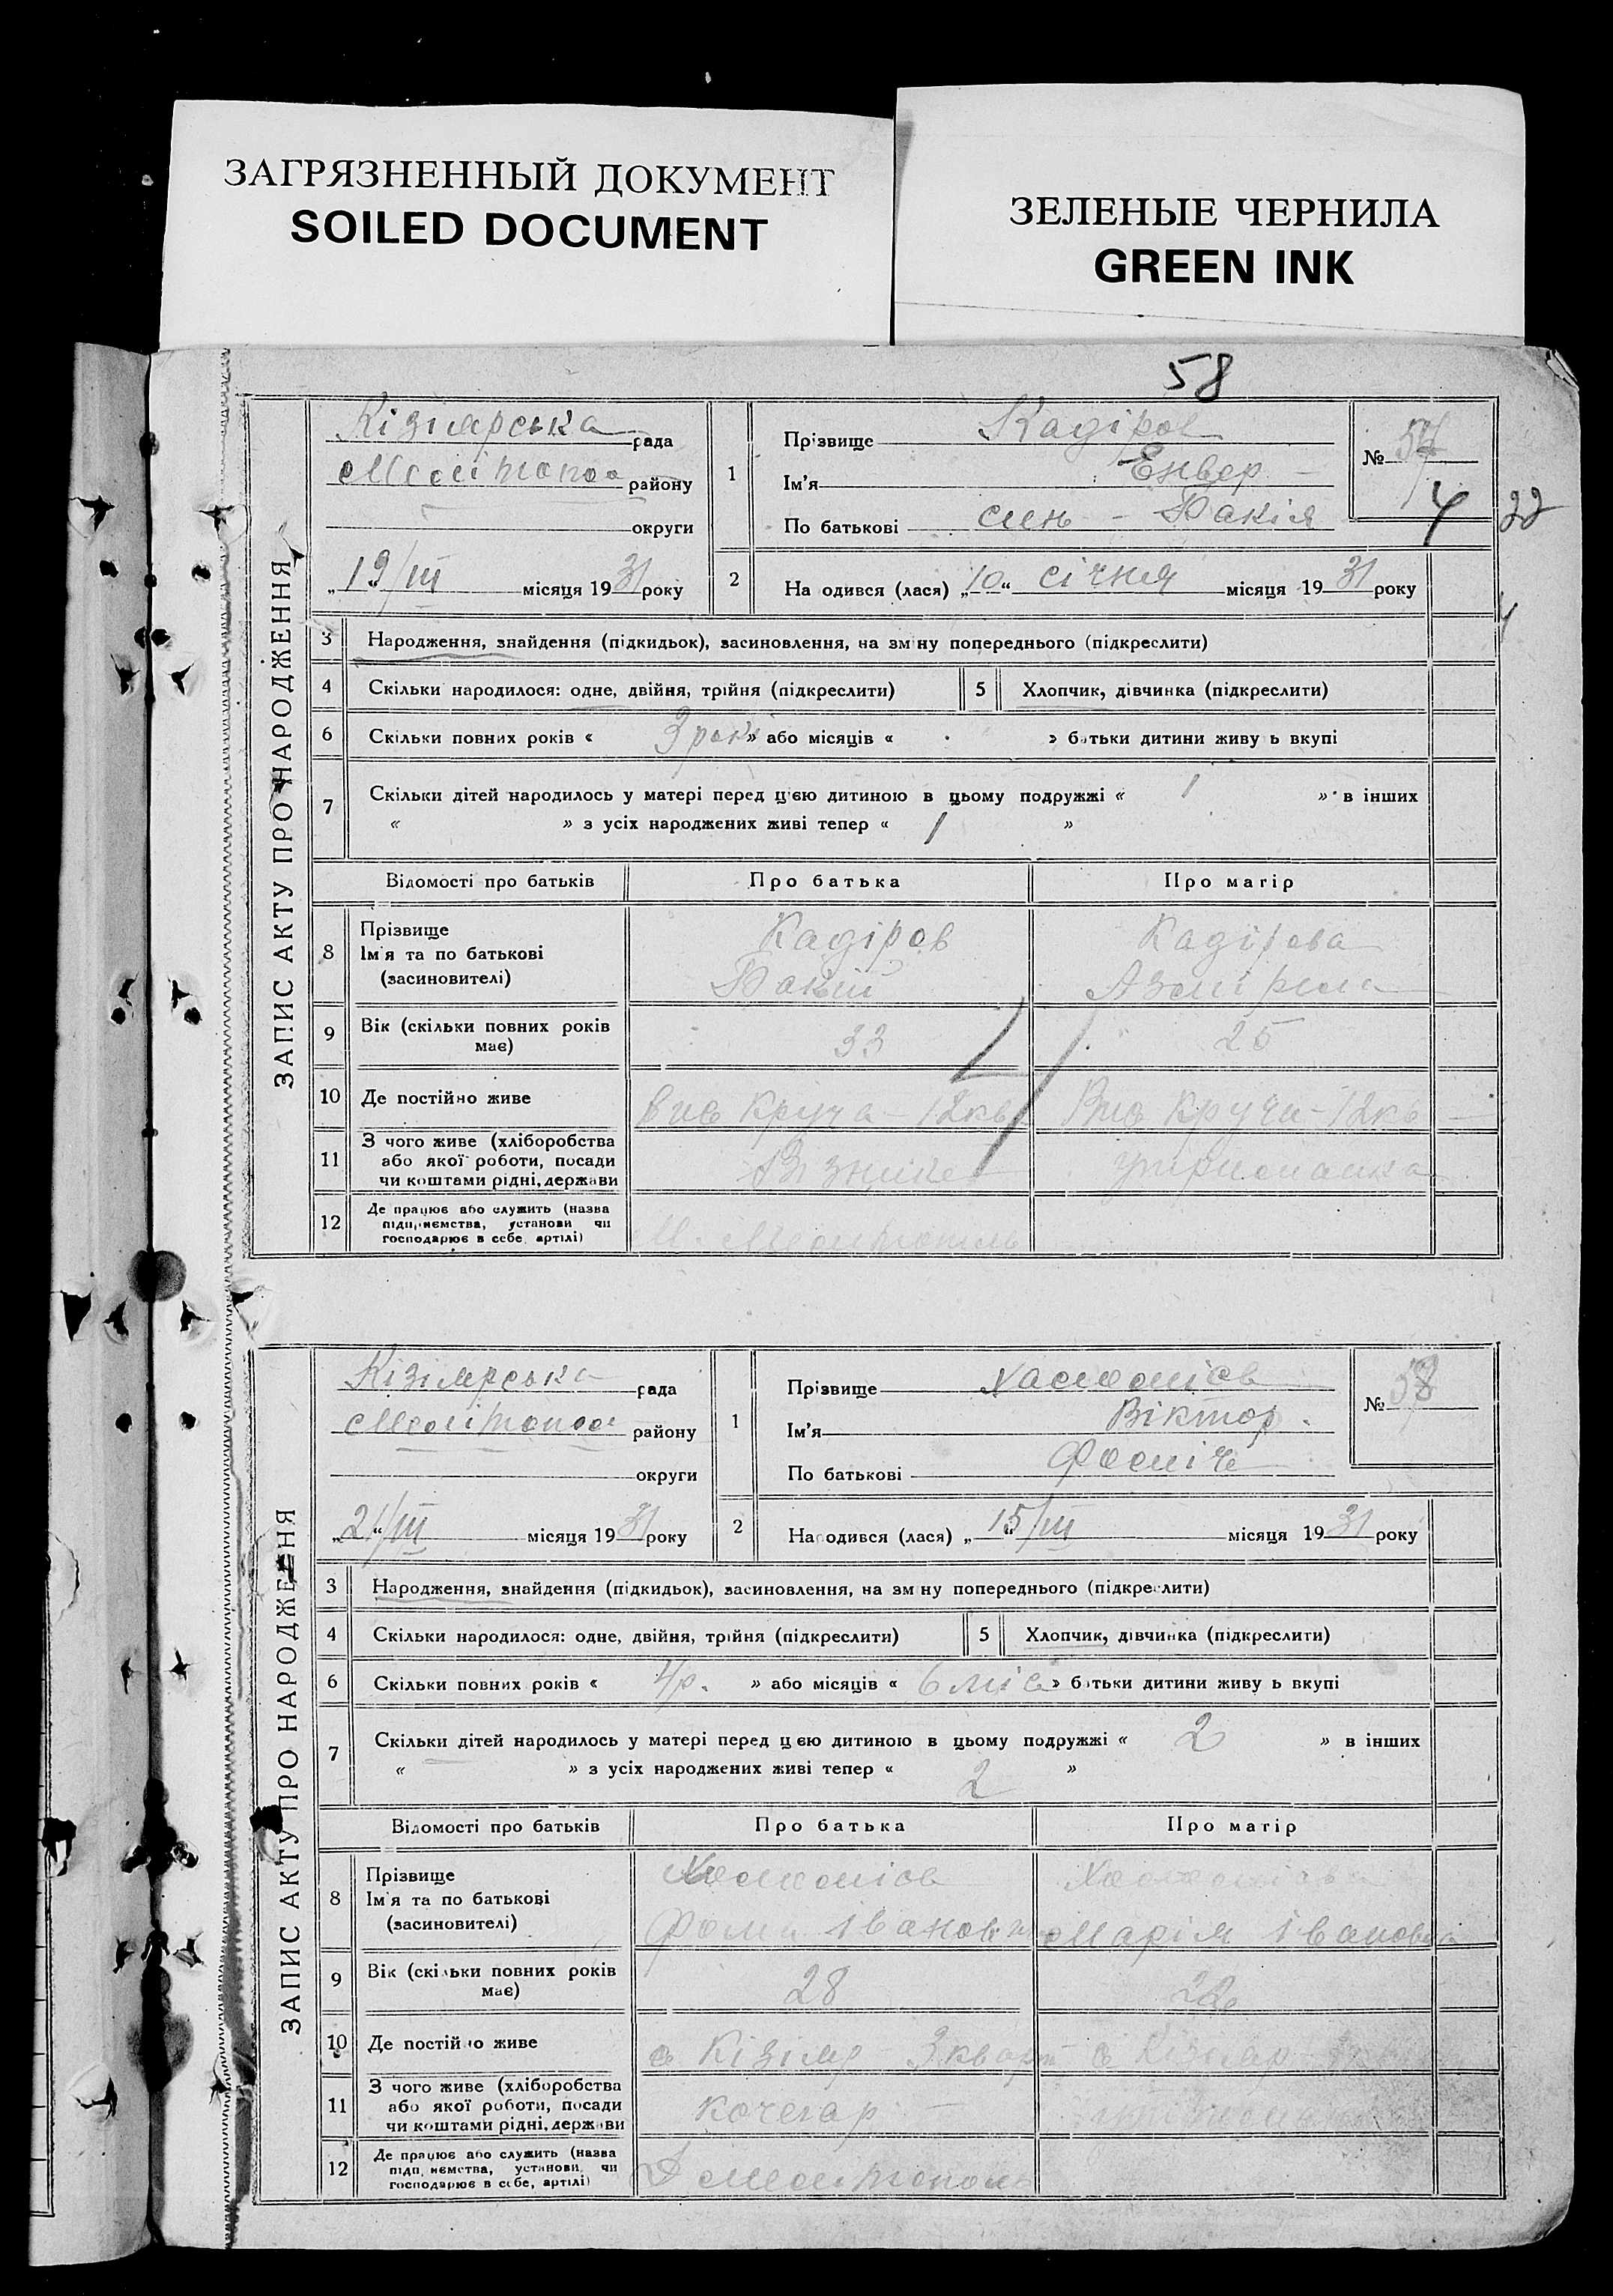 ЗАГРЯЗНЕННЫЙ ДОКУМЕНТ
SOILED DOCUMENT
ЗЕЛЕНЫЕ ЧЕРНИЛА
GREEN INK
58
ЗАПИС АКТУ ПРО НАРОДЖЕННЯ
Кізіярська рада
Меліտոպօл району
округи
„19/III місяця 1931 року
1
Прізвище Кадіров
Ім'я Енвер
По батькові
№
4 22
2
На одився (лася) „10“ січня місяця 1931 року
3 Народження, знайдення (підкидьок), засиновлення, на зміну попереднього (підкреслити)
4 Скільки народилося: одне, двійня, трійня (підкреслити)
5 Хлопчик, дівчинка (підкреслити)
6 Скільки повних років « 3 роки » або місяців « » батьки дитини живу ь вкупі
7 Скільки дітей народилось у матері перед цією дитиною в цьому подружжі « 1 » в інших
« » з усіх народжених живі тепер « 1 »
Відомості про батьків Про батька Про матір
8 Прізвище Кадіров Кадірова
Ім'я та по батькові
(засиновителі)
9 Вік (скільки повних років має) 33 25
10 Де постійно живе Круча - 12 кв Кручи - 12 кв
11 З чого живе (хліборобства
або якої роботи, посади
чи коштами рідні, держави
12 Де працює або служить (назва
підприємства, установи чи
господарює в себе, артілі) Мелітополь
ЗАПИС АКТУ ПРО НАРОДЖЕННЯ
Кізіярська рада
Мелітопол району
округи
„21“/III місяця 1931 року
1
Прізвище
Ім'я Віктор.
По батькові Фоміч
№ 58
2
На одився (лася) „15/III місяця 1931 року
3 Народження, знайдення (підкидьок), засиновлення, на зміну попереднього (підкреслити)
4 Скільки народилося: одне, двійня, трійня (підкреслити)
5 Хлопчик, дівчинка (підкреслити)
6 Скільки повних років « 4 р. » або місяців « 6 міс » батьки дитини живу ь вкупі
7 Скільки дітей народилось у матері перед цією дитиною в цьому подружжі « 2 » в інших
« » з усіх народжених живі тепер « 2 »
Відомості про батьків Про батька Про матір
8 Прізвище
Ім'я та по батькові Фома Іванович Марія Івановна
(засиновителі)
9 Вік (скільки повних років має) 28
10 Де постійно живе с Кізіяр 3 кварт с Кізіяр
11 З чого живе (хліборобства
або якої роботи, посади
чи коштами рідні, держави кочегар
12 Де працює або служить (назва
підприємства, установи, чи
господарює в себе, артілі) Мелітополь